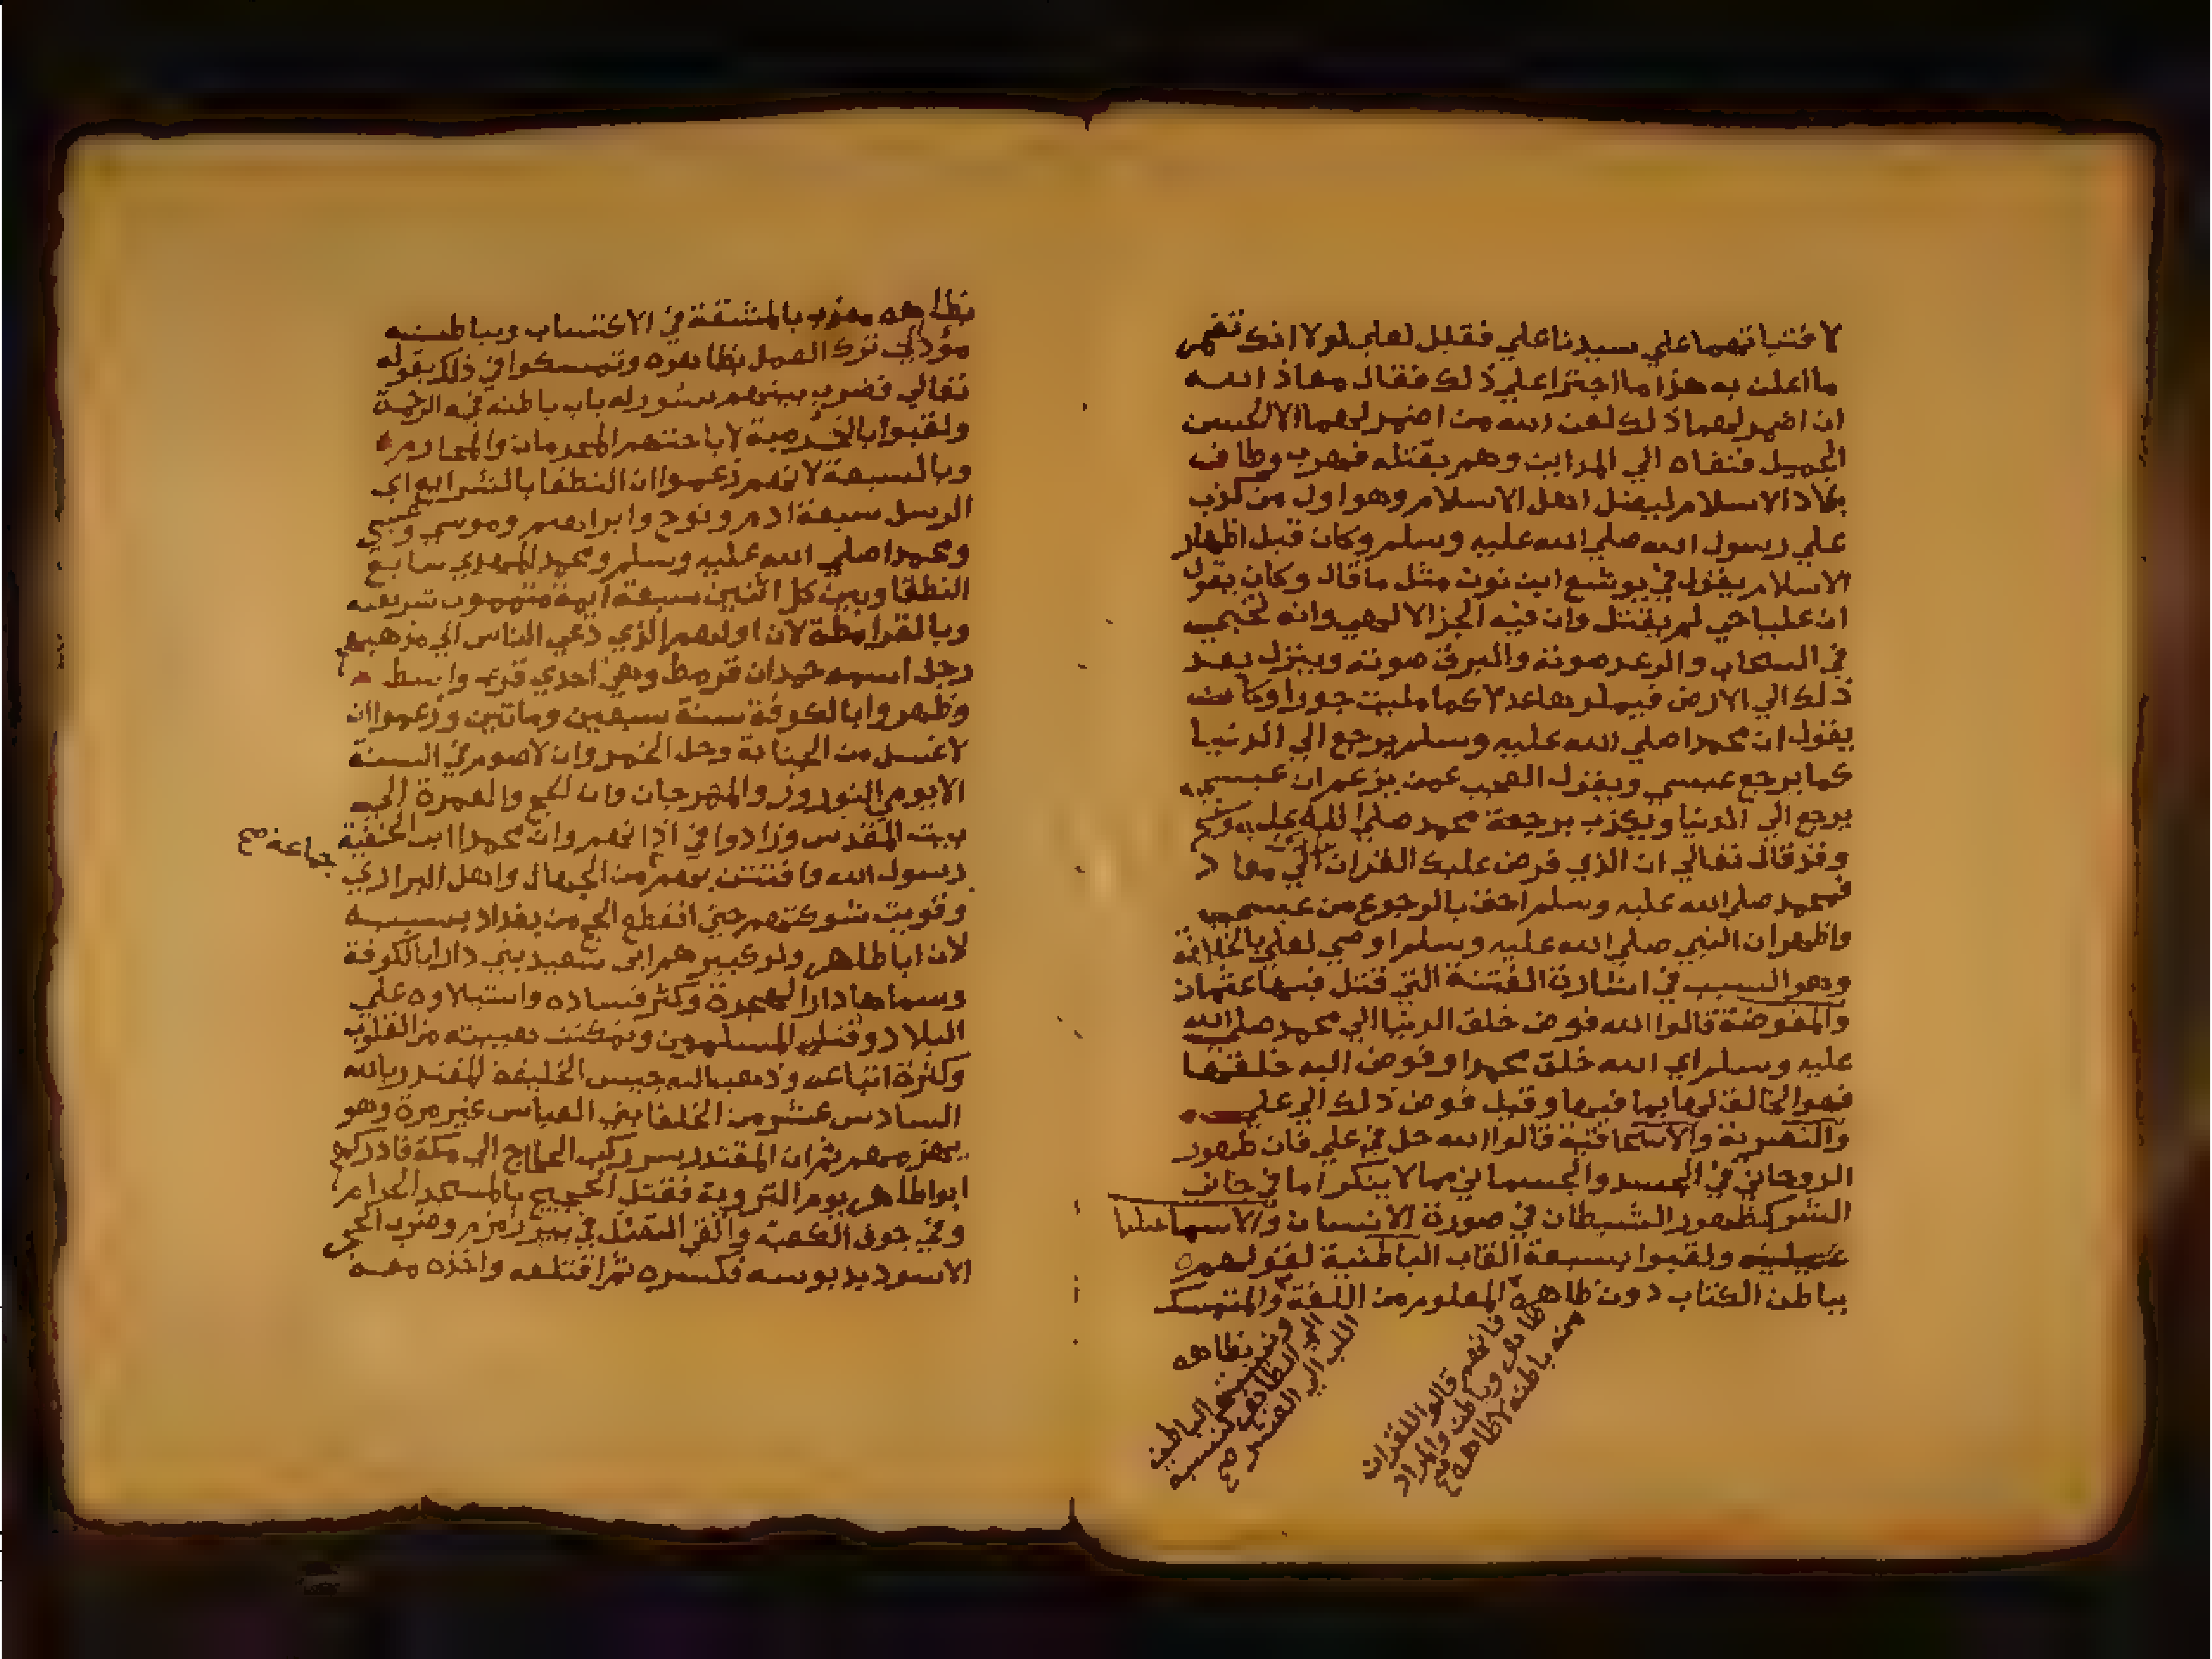 لافتياتهما علي سيدنا علي فقيل لعلي لولا انك تضمر
ما اعلن به هذا ما اجترا علي ذلك فقال معاذ الله
ان اضمر لهما ذلك لعن الله من اضمر لهما الا الحسن
الجميل فنفاه الي المداين وهم بقتله فهرب وطاف
بلاد الاسلام ليضل اهل الاسلام وهو اول من كذب
علي رسول الله صلي الله عليه وسلم وكان قبل اظهار
الاسلام يقول في يوشع ابن نون مثل ما قال وكان يقول
ان عليا حي لم يقتل وان فيه الجز الالهي وانه يجي
في السحاب والرعد صوته والبرق صوته وينزل بعد
ذلك الي الارض فيملوها عدلا كما مليت جورا وكان
يقول ان محمدا صلي الله عليه وسلم يرجع الي الدنيا
كما يرجع عيسي ويقول العجب عمن يزعم ان عيسي
يرجع الي الدنيا ويكذب برجعة محمد صلي الله عليه وسلم
وقد قال تعالي ان الذي فرض عليك القران الي معاد
فمحمد صلي الله عليه وسلم احق بالرجوع من عيسي
واظهر ان النبي صلي الله عليه وسلم اوصي لعلي بالخلافة
وهو السبب في اثارة الفتنة التي قتل فيها عثمان
والمفوضة قالوا الله فوض خلق الدنيا الي محمد صلي الله
عليه وسلم اي الله خلق محمدا وفوض اليه خلقها
فهو الخالق لها بما فيها وقيل فوض ذلك الي علي
والنصرية والاسحاقية قالوا الله حل في علي فان ظهور
الروحاني في الجسد والجسماني مما لا ينكر اما في جانب
الشر كظهور الشيطان في صورة الانسان والاسماعليا
ولقبوا بسبعة القاب الباطنية لقولهم
بباطن الكتاب دون ظاهره المعلوم من اللغة والمتمسك
فانهم قالوا للقران
ظاهر وباطن والمراد
منه باطنه لا ظاهره صح
ونسبة الباطن
الي الظاهر كنسبة
اللب الي القشر صح
بظاهه
بظاهه معذب بالمشقة في الاكتساب وبباطنه
مؤد الي ترك العمل بظاهره وتمسكوا في ذلك بقوله
تعالي فضرب بينهم بسور له باب باطنه فيه الرحمة
ولقبوا بالخرمية لاباحتهم المحرمات والمحارم
وبالسبعة لانهم زعموا ان النطقا بالشرايع اي
الرسل سبعة ادم ونوح وابراهيم وموسي وعيسي
ومحمدا صلي الله عليه وسلم ومحمد المهدي سابع
النطقا وبين كل اثنين سبعة ايمة متممون شريعته
وبالقرامطة لان اولهم الذي دعي الناس الي مذهبهم
رجل اسمه حمدان قرمط وهي احدي قري واسط
وظهروا بالكوفة سنة سبعين وماتين وزعموا ان
لا غسل من الجنابة وحل الخمر وان لا صوم في السنة
الا يومي النوروز والمهرجان وان الحج والعمرة الي
بيت المقدس وزادوا في اذانهم وان محمدا ابن الحنفية
رسول الله وافتتن بهم من الجهال واهل البراري
جماعة صح
وقويت شوكتهم حتي انقطع الحج من بغداد بسببه
لان ابا طاهر ولد كبيرهم ابي سعيد بني دارا بالكوفة
وسماها دار الهجرة وكثر فساده واستيلاوه علي
البلاد وقتل المسلمين وتمكنت هيبته من القلوب
وكثرة اتباعه وذهب اليه جيس الخليفة المقتدر بالله
السادس عشر من الخلفا بني العباس غير مرة وهو
يهزمهم ثم ان المقتدر سير ركب الحجاج الي مكة فادركهم
ابو اطاهر يوم التروية فقتل الحجيج بالمسجد الحرام
وفي جوف الكعبة والقي القتلي في بير زمزم وضرب الحجر
الاسود بدبوسه فكسره ثم اقتلعه واخذه معه